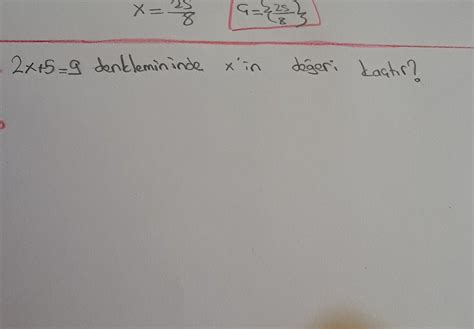 x = 25/8 Ç={25/8}
2x+5=9 denklemininde x'in değeri kaçtır?